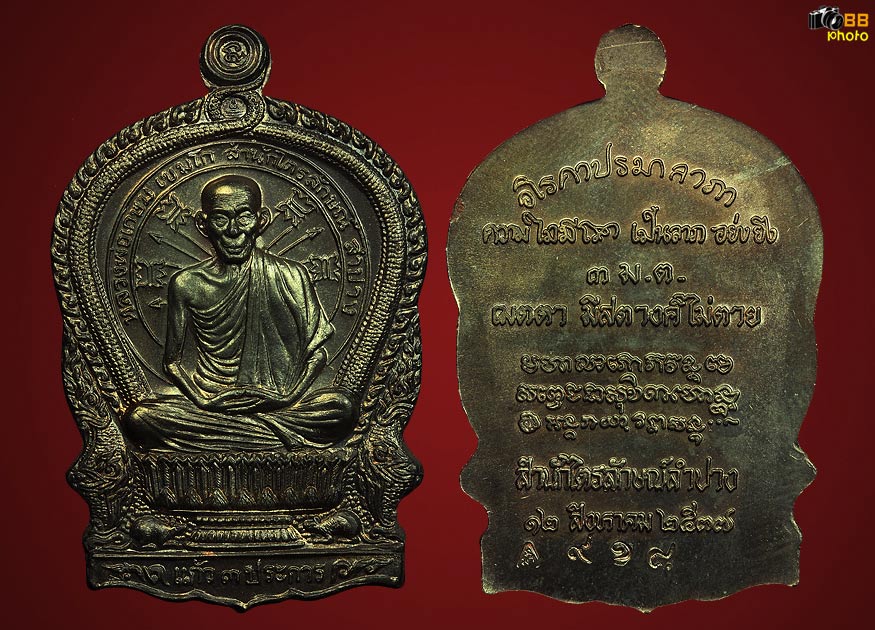 BB
photo
หลวงพ่อเกษม เขมโก สำนักไตรลักษณ์ ลำปาง
แก้ว ๓ ประการ
อโรคาปรมาลาภา
ความไม่มีโรค เป็นลาภ อย่างยิ่ง
๓ ม.ต.
เมตตา มีสตางค์ ไม่ตาย
สำนักไตรลักษณ์ลำปาง
๑๒ สิงหาคม ๒๕๓๗
๙๑๘